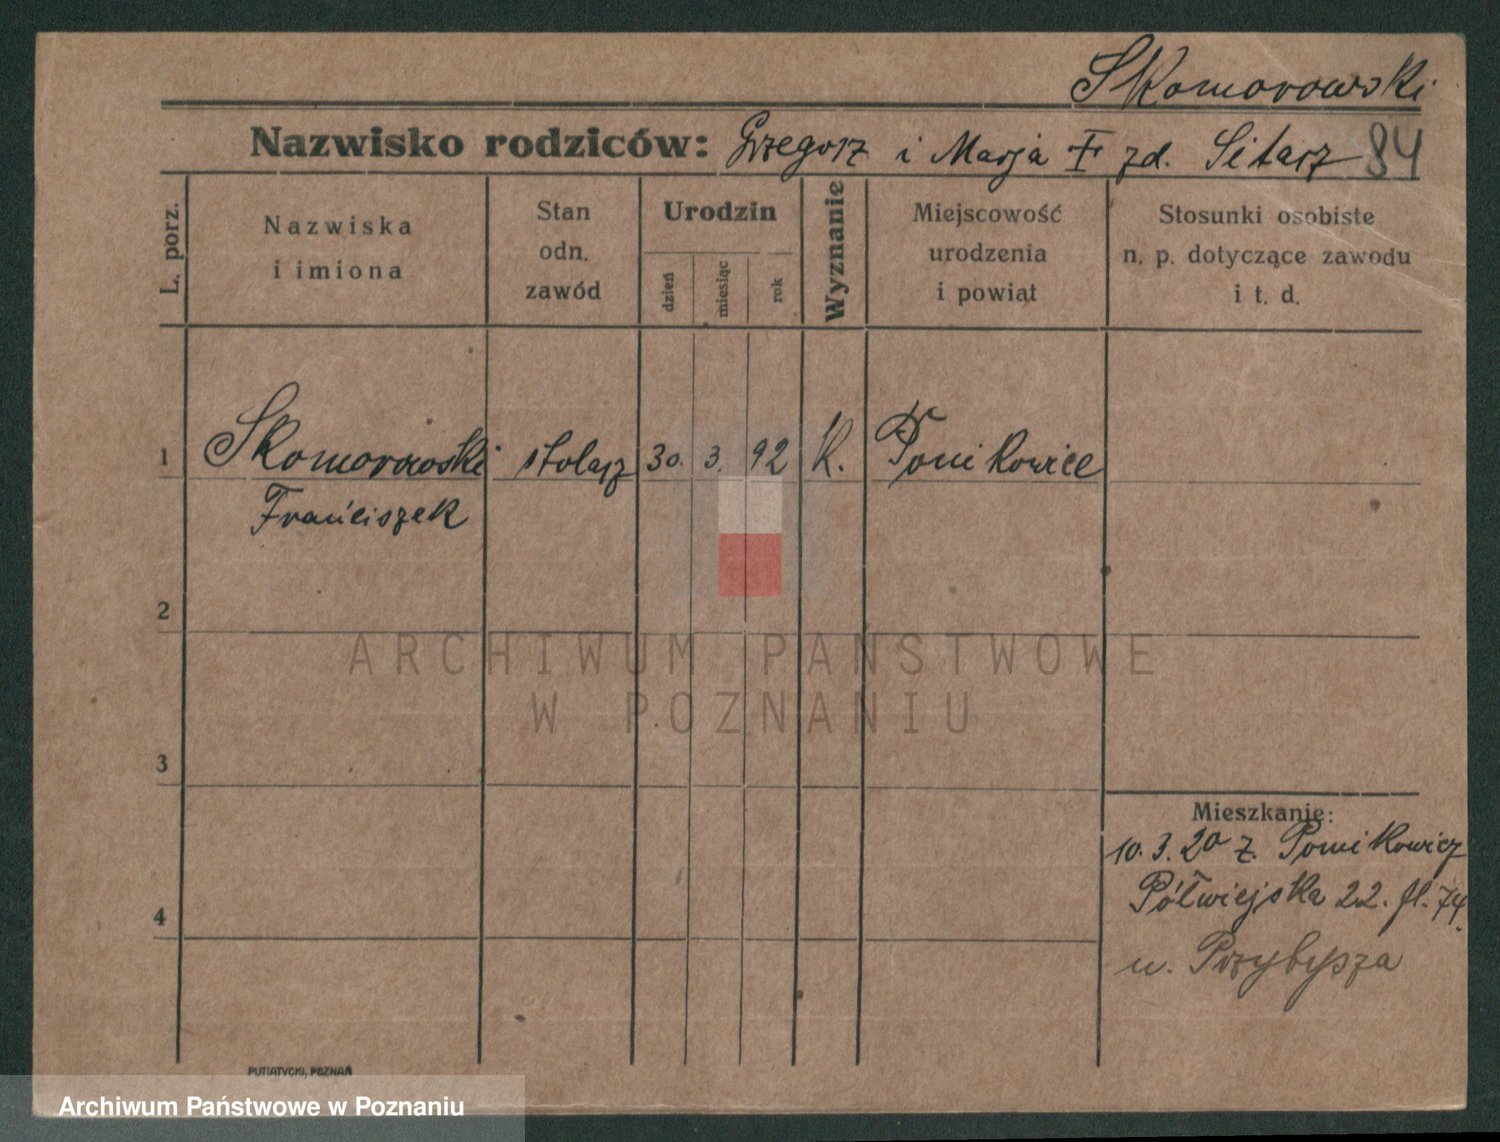 Skomorowski
Nazwisko rodziców: Grzegorz i Marja I zd. Sitarz 84
L. porz.
Nazwiska
i imiona
Stan
odn.
zawód
Urodzin
dzień
miesiąc
rok
Wyznanie
Miejscowość
urodzenia
i powiat
Stosunki osobiste
n. p. dotyczące zawodu
i t. d.
1 Skomorowski stolarz 30. 3. 92 K. Ponikowice
Franciszek
2
ARCHIWUM PAŃSTWOWE
W POZNANIU
3
Mieszkanie:
10. 3. 20 z. Ponikowicz
Półwiejska 22. fl. 74.
4
u. Przybysza
PUTIATYCKI, POZNAŃ
Archiwum Państwowe w Poznaniu